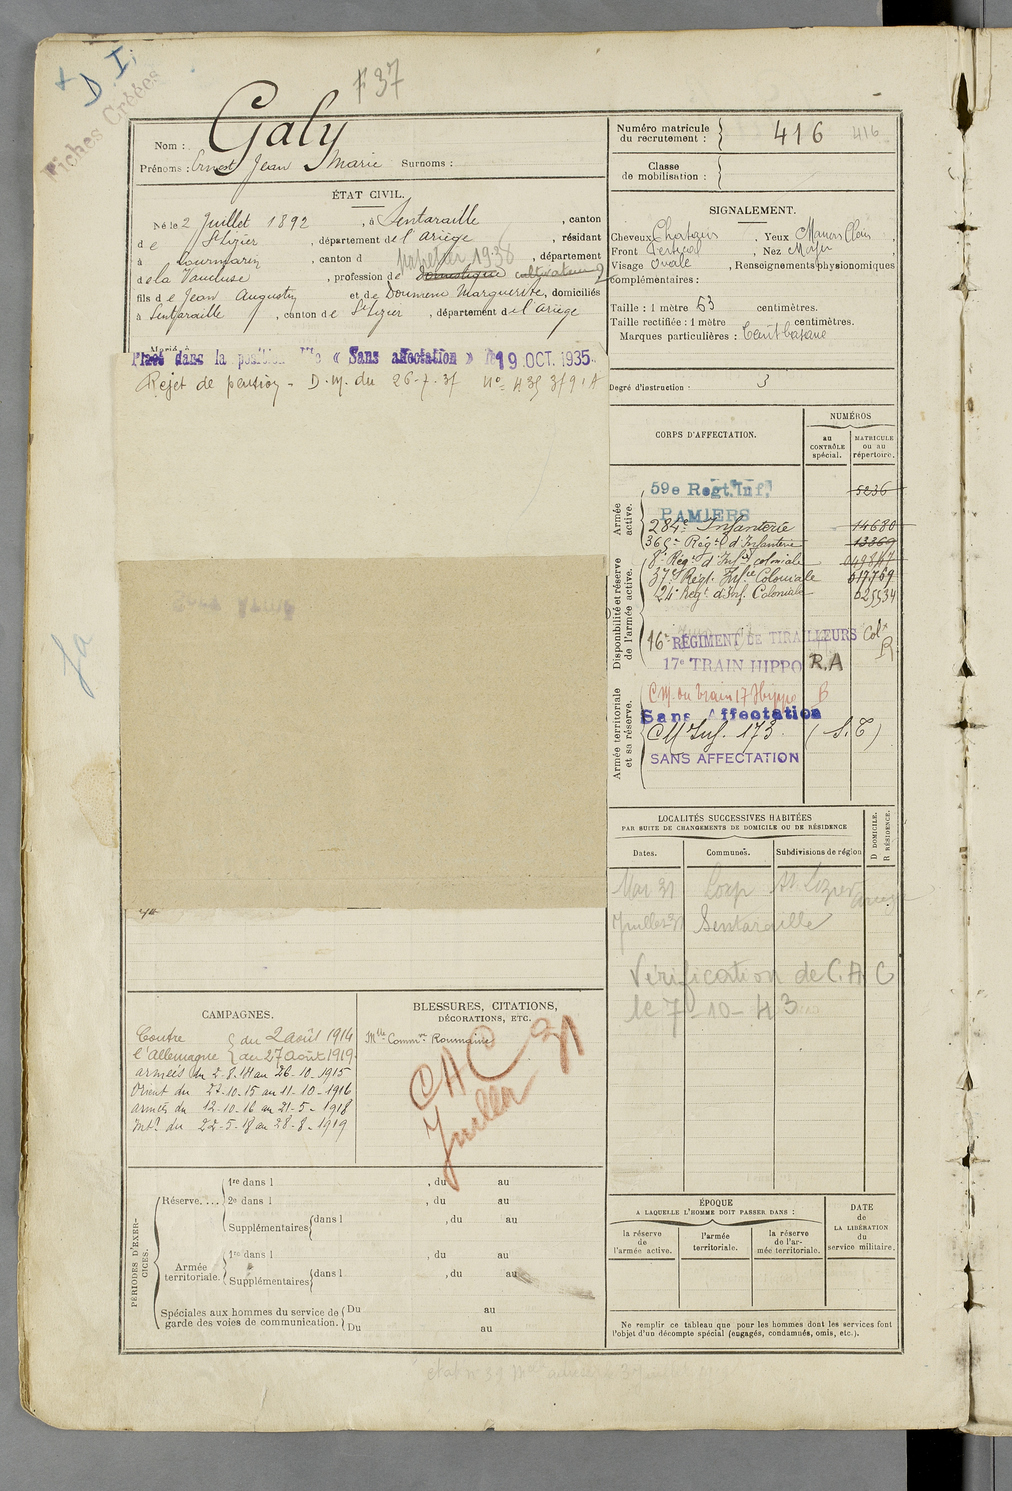 D I;
Fiches Créées
F 37
Nom : Galy
Prénoms : Ernest Jean Marie Surnoms :
Numéro matricule du recrutement : 416 416
Classe de mobilisation :
ÉTAT CIVIL.
Né le 2 Juillet 1892, à Sentaraille, canton
de St Lizier, département de l'Ariège, résidant
à Lourmarin, canton d 1938, département
de la Vaucluse, profession de domestique cultivateur
fils de Jean Augustin et de Doumenc Marguerite, domiciliés
à Sentaraille, canton de St Lizier, département de l'Ariège
Placé dans la position dite « Sans affectation » le 19 OCT. 1935
Rejet de pension - D.M. du 26-7-37 No 435 379 A
SIGNALEMENT.
Cheveux Chatains. Yeux Marron Clair,
Front Vertical. Nez Moyen
Visage Ovale, Renseignements physionomiques
complémentaires :
Taille : 1 mètre 63 centimètres.
Taille rectifiée : 1 mètre centimètres.
Marques particulières : teint basané
Degré d'instruction : 3
CORPS D'AFFECTATION.
NUMÉROS
au CONTRÔLE spécial.
MATRICULE ou au répertoire.
Armée active.
59e Regt. Inf. 5236
PAMIERS
284e Infanterie 14680
Disponibilité et réserve de l'armée active.
365e Régt d'Infanterie 13369
8e Régt d'Infie coloniale
37e Régt. Infie Coloniale 017769
24e Régt d'Inf. Coloniale 025534
16e RÉGIMENT DE TIRAILLEURS Colx
17e TRAIN HIPPO R.A R
Armée territoriale et sa réserve.
C.M. du train 17 Hippo B
Sans Affectation
CM Inf. 173 (S.T)
SANS AFFECTATION
LOCALITÉS SUCCESSIVES HABITÉES
PAR SUITE DE CHANGEMENTS DE DOMICILE OU DE RÉSIDENCE
Dates. Communes. Subdivisions de région
D DOMICILE.
R RÉSIDENCE.
Mai 31 Lorp St Lizier Ariège
Juillet 31 Sentaraille
Vérification de C.A.C
le 7-10-43
CAMPAGNES.
Contre l'Allemagne { du 2 août 1914
au 27 Août 1919.
armées du 2.8.14 au 26-10-1915
Orient du 27-10-15 au 11-10-1916
armées du 12-10-16 au 21-5-1918
Intr du 22-5-18 au 28-8-1919
BLESSURES, CITATIONS,
DÉCORATIONS, ETC.
Mlle Commve Roumaine
CAC 31
Juillet
PÉRIODES D'EXERCICES.
Réserve....
1re dans l , du au
2e dans l , du au
Supplémentaires { dans l , du au
Armée territoriale.
1re dans l , du au
Supplémentaires { dans l , du au
Spéciales aux hommes du service de garde des voies de communication.
Du au
Du au
ÉPOQUE
A LAQUELLE L'HOMME DOIT PASSER DANS :
la réserve de l'armée active.
l'armée territoriale.
la réserve de l'armée territoriale.
DATE de LA LIBÉRATION du service militaire.
Ne remplir ce tableau que pour les hommes dont les services font
l'objet d'un décompte spécial (engagés, condamnés, omis, etc.).